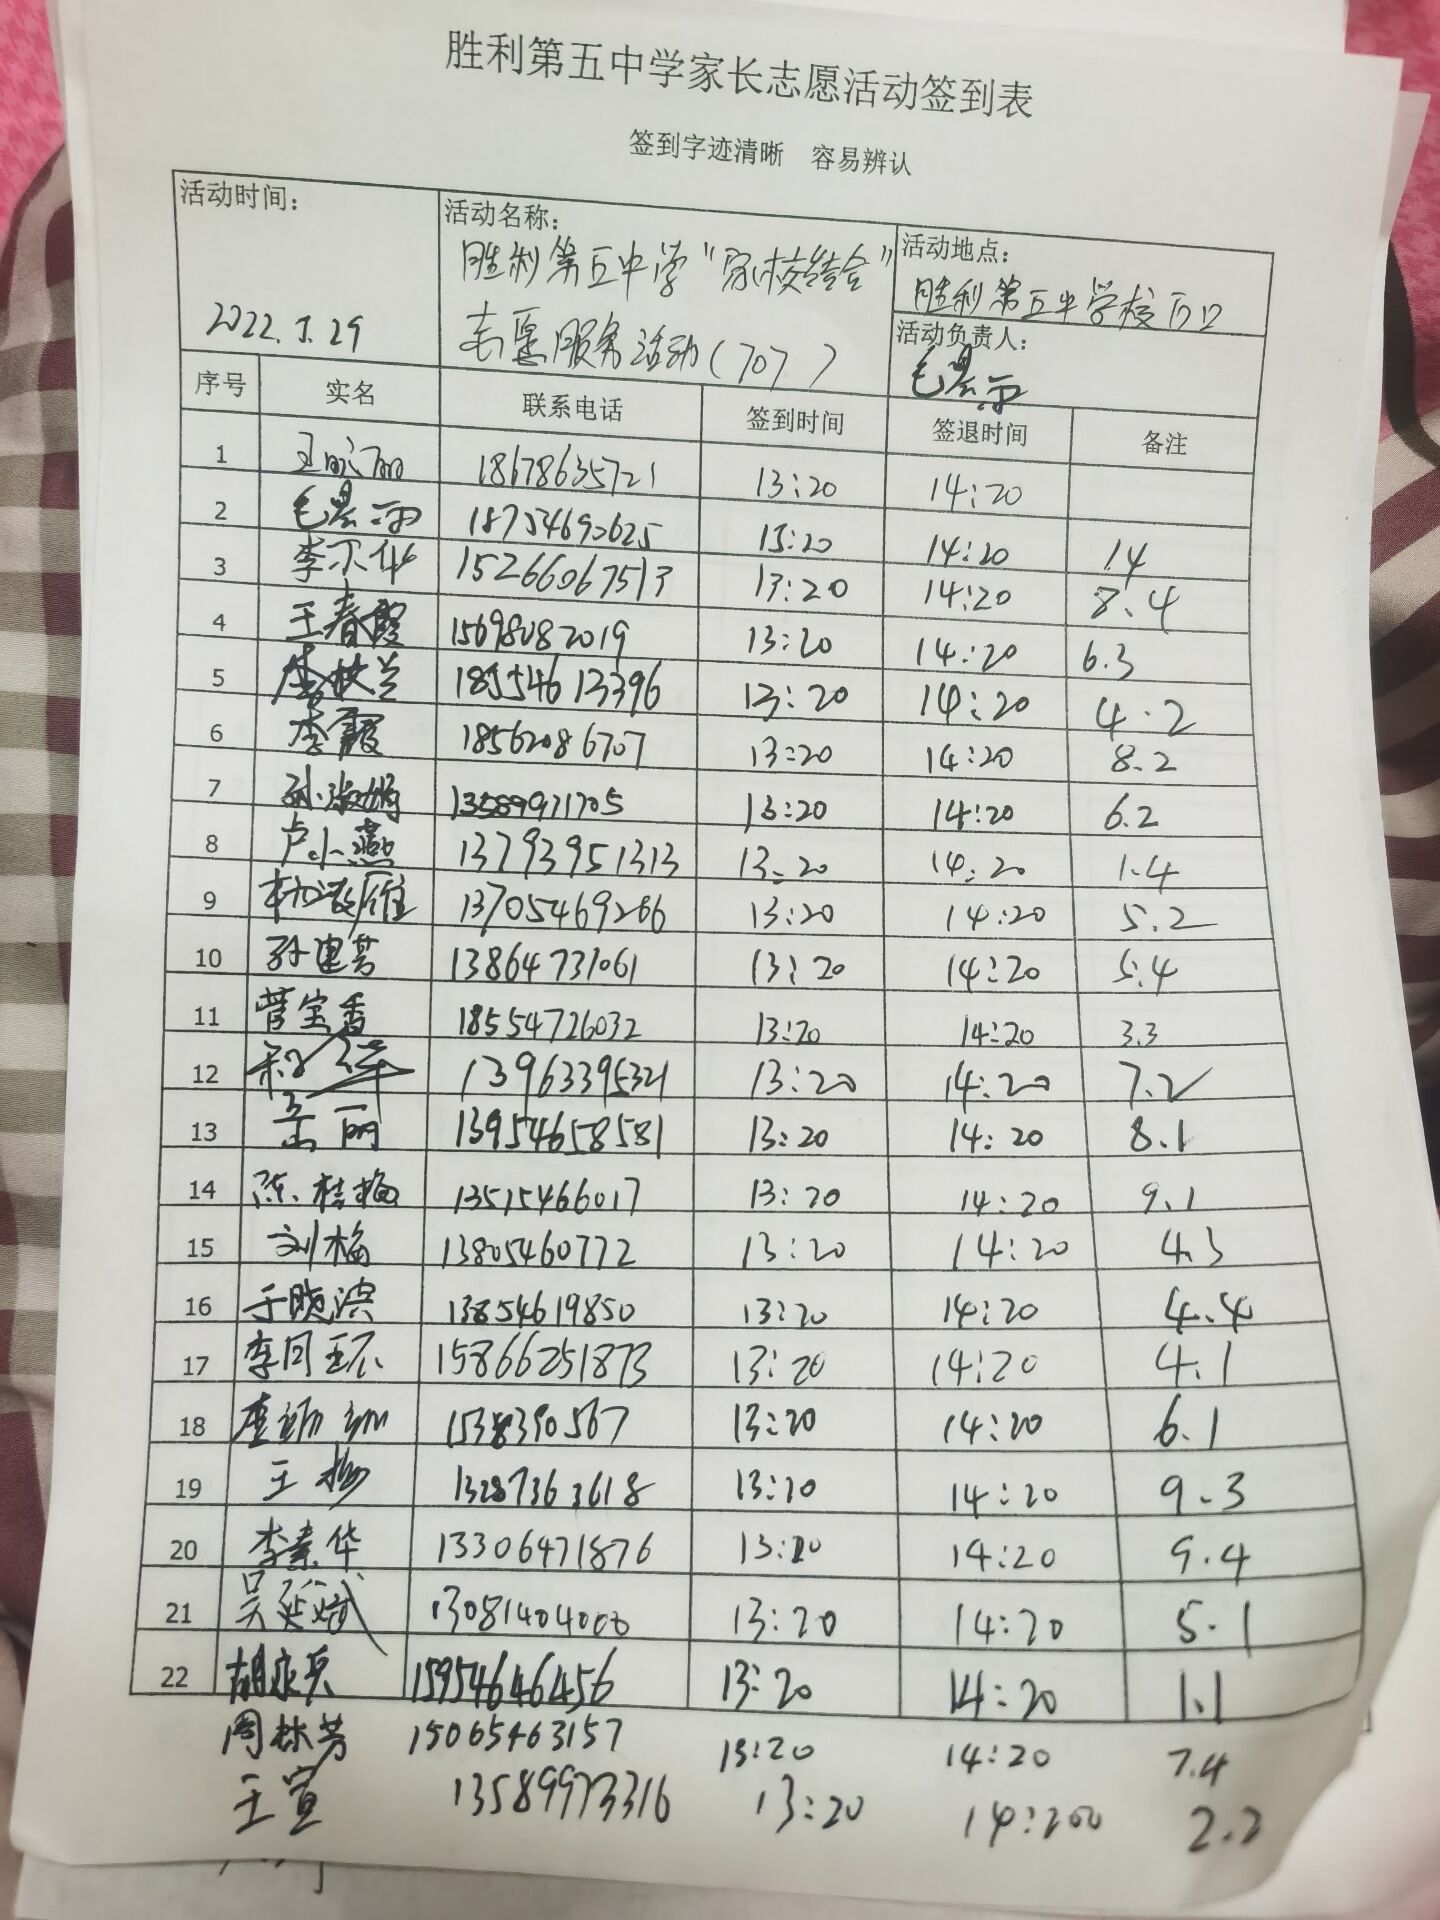 胜利第五中学家长志愿活动签到表
签到字迹清晰 容易辨认
活动时间: 2022.5.29
活动名称: 胜利第五中学“家校结合”
志愿服务活动(707)
活动地点: 胜利第五中学校门口
活动负责人:
序号 实名 联系电话 签到时间 签退时间 备注
1 18678635721 13:20 14:20
2 18754690625 13:20 14:20 14
3 15266067513 13:20 14:20 8.4
4 王春霞 15698082019 13:20 14:20 6.3
5 18554613396 13:20 14:20 4.2
6 李霞 18562086707 13:20 14:20 8.2
7 孙淑娟 13589971705 13:20 14:20 6.2
8 卢小燕 13793951313 13:20 14:20 1.4
9 13705469266 13:20 14:20 5.2
10 孙建芳 13864731061 13:20 14:20 5.4
11 菅宝香 18554726032 13:20 14:20 3.3
12 13963395321 13:20 14:20 7.2
13 13954658581 13:20 14:20 8.1
14 陈桂梅 13515466017 13:20 14:20 9.1
15 刘梅 13805460772 13:20 14:20 4.3
16 于晓滨 13854619850 13:20 14:20 4.4
17 15866251873 13:20 14:20 4.1
18 1538390567 13:20 14:20 6.1
19 王梅 13287363618 13:20 14:20 9.3
20 李素华 13306471876 13:20 14:20 9.4
21 吴延斌 13081404000 13:20 14:20 5.1
22 胡永兵 15954646456 13:20 14:20 1.1
周栋芳 15065463157 13:20 14:20 7.4
王宣 13589973316 13:20 14:200 2.2